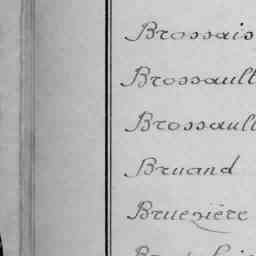 Brossais
Brossault
Brossault
Bruand
Bruezière